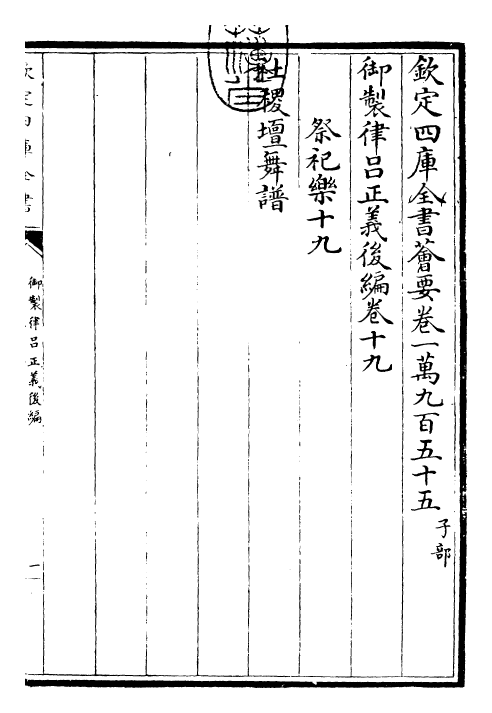 欽定四庫全書薈要卷一萬九百五十五 子部
御製律呂正義後編卷十九
祭祀樂十九
社稷壇舞譜
欽定四庫全書
御製律呂正義後編
一